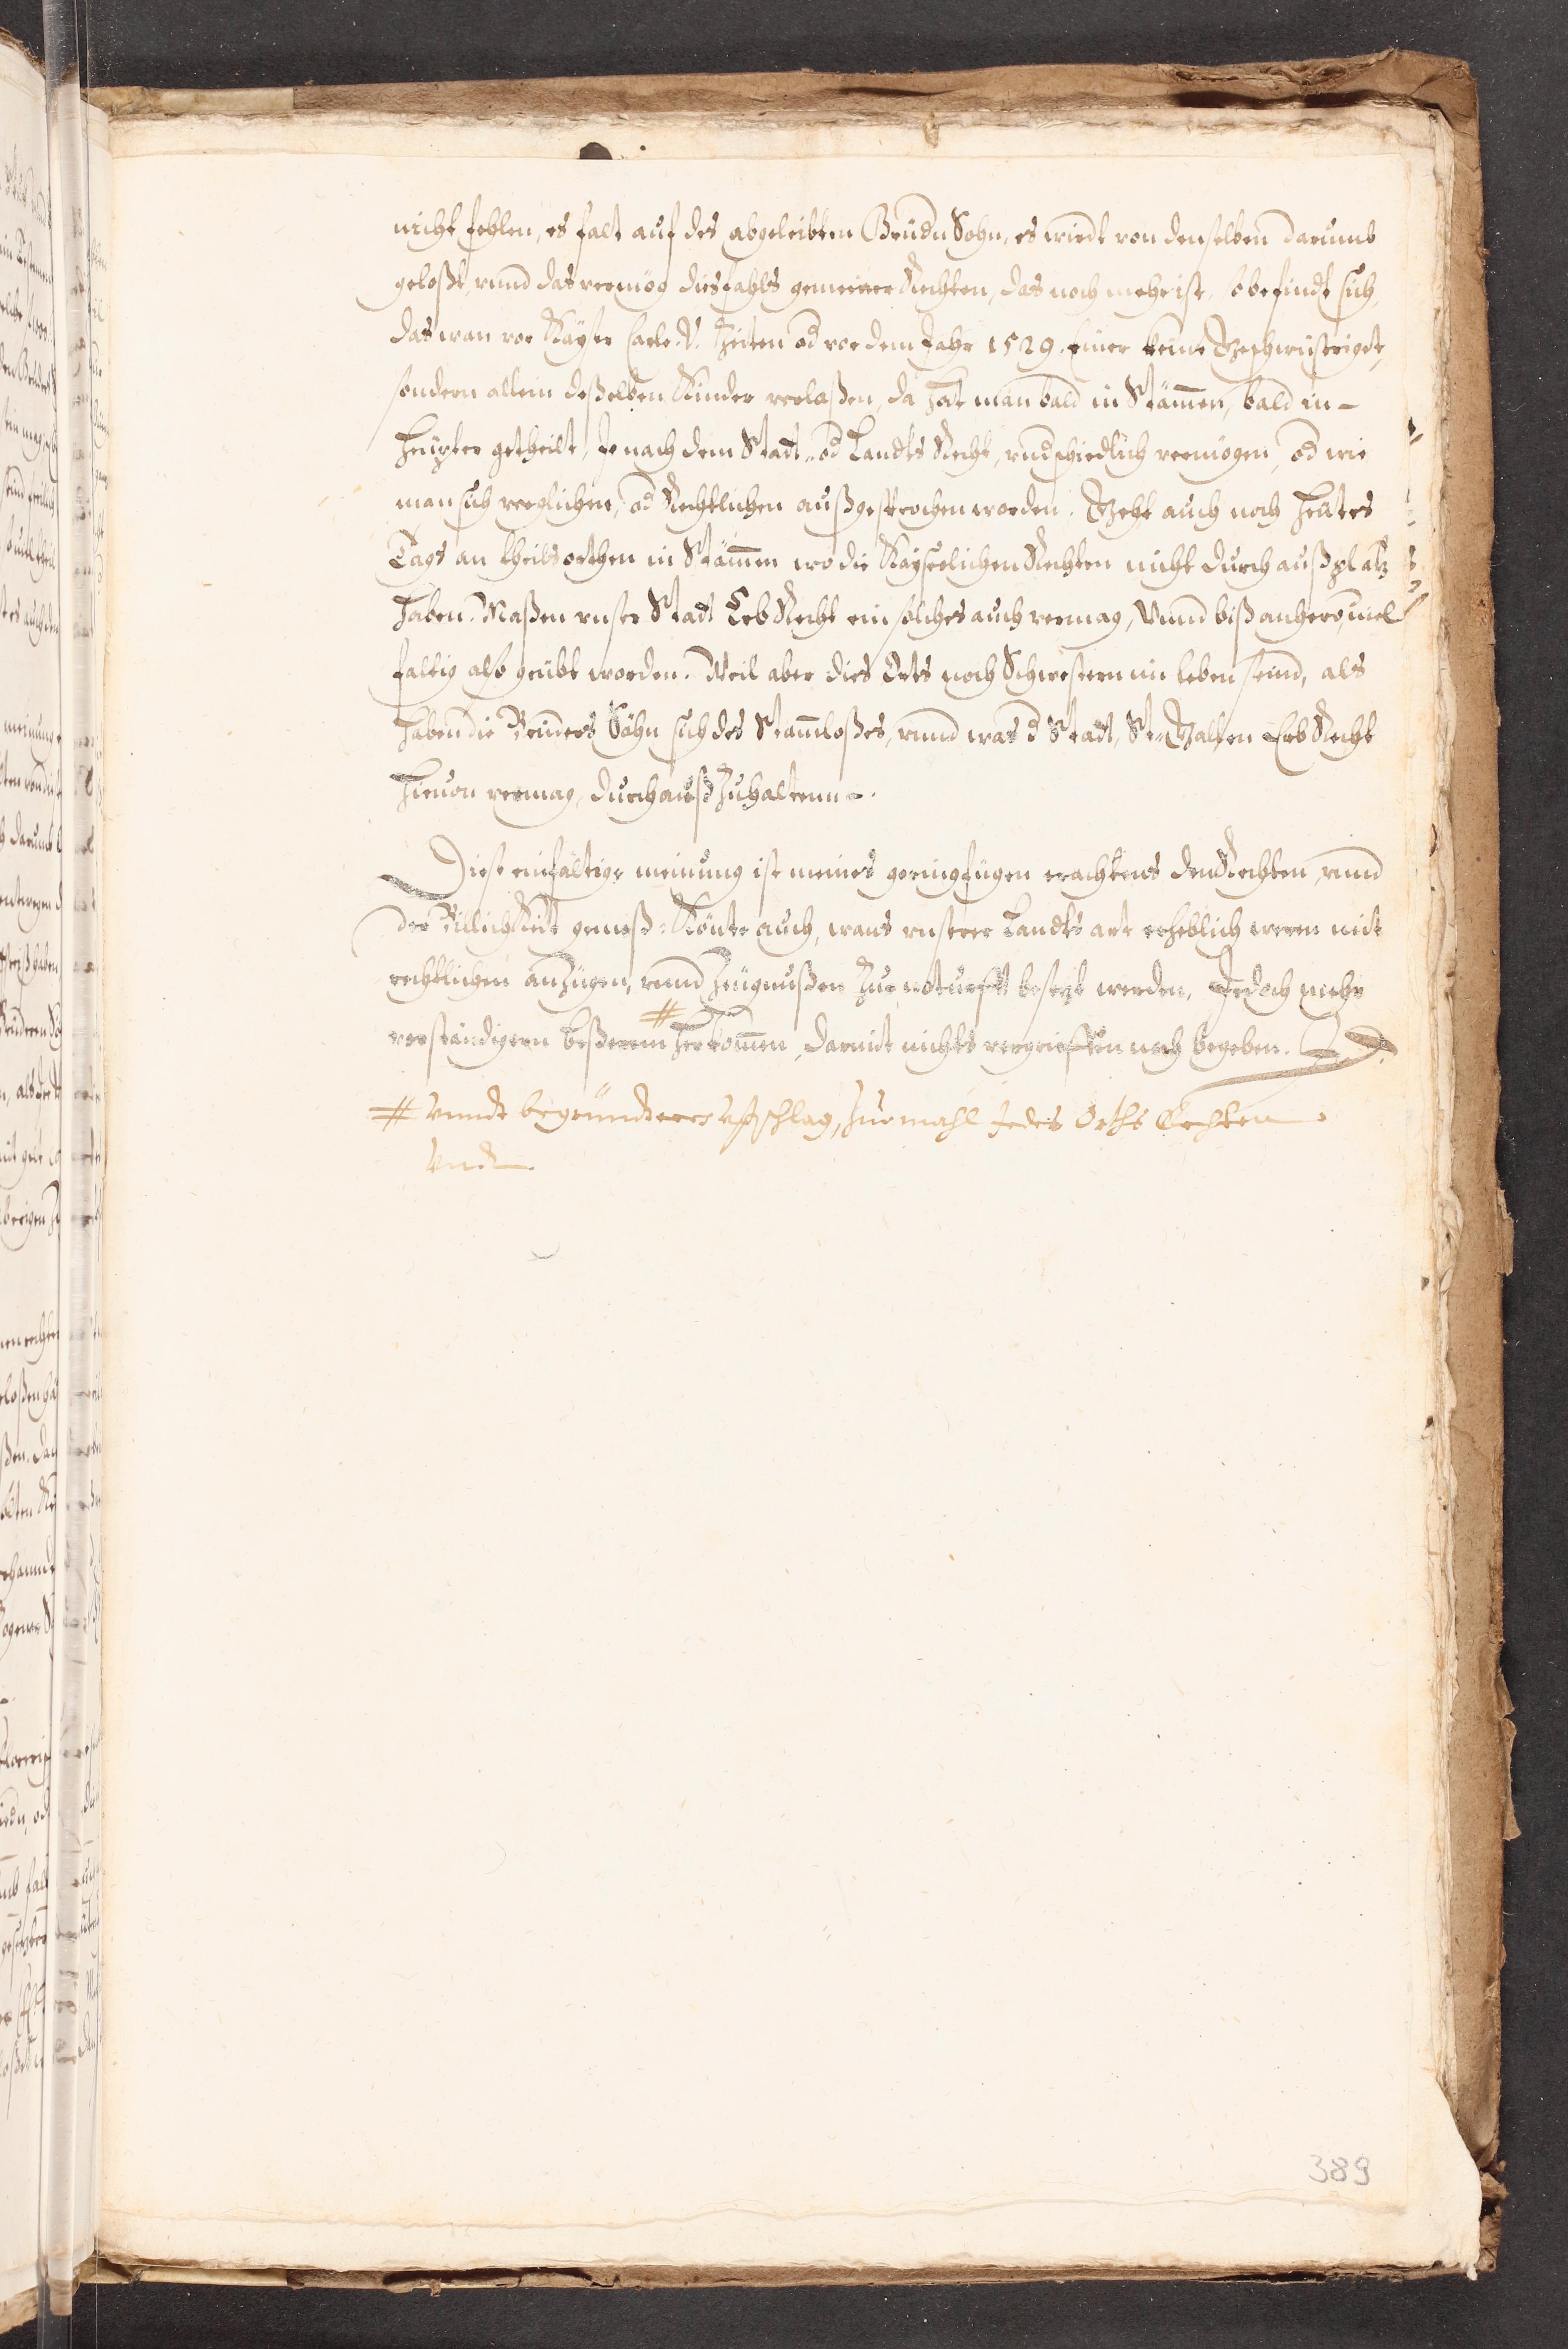 nicht fehlen, es falt auf des abgeleibten Brüdn Sohn, es wirdt von denselben darumb
geloßt, vnnd das vermög dis fahls gemeiner Rechten, das noch mehr ist, so befindt sich,
das wan vor Kayser Carle. V. Zeiten od vor dem Jahr 1529. Einer keine Geschwüstrigte,
sondern allein deßelben Kinder verlaßen, da hat man bald in Stämen, bald in-
Häupter getheilt, ie nach dem Stadt- od Landts Recht, vndschiedlich vermögen, od wie
man sich verglichen, od Rechtlichen außgesprochen worden. Geht auch noch heütes
Tags an theils orthen in Stämen wo die Kayserlichen Rechten nicht durch auß platz
haben. Maßen vnser Stadt Erb Recht ein solches auch vermag, Vnnd biß anhero, viel
faltig also geübt worden. Weil aber dies Orts noch Schwestern im leben seind, als
haben die Brüders Söhn sich des Stamloßes, vnnd was d Stadt, St. Gallen Erb Recht
hieuon vermag, durch auß zuhaltenn.
Diese einfältige meinung ist meines geringfügen erachtens den Rechten, vnnd
der Bilichkeit gemeß: Könte auch, wans vnserer Landts art erheblich weren mit
rechtlichen anzügen, vnnd Zeügnußen zur noturfft besezt werden, Jedoch mehr
verständigern beßerem # herkomen, darmit nichts vergriffen noch begeben.
# Vnndt begründterer Rahtschlag, zur mahl Jedes Orths Rechten
Vnd
389